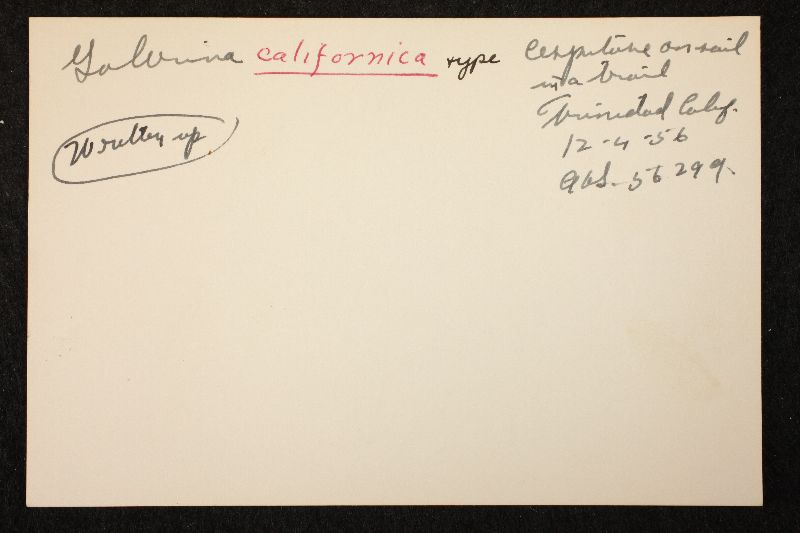 Galerina californica type
Cespitose on soil
in a trail
Trinidad Calif.
12-4-56
AHS-56299.
Written up